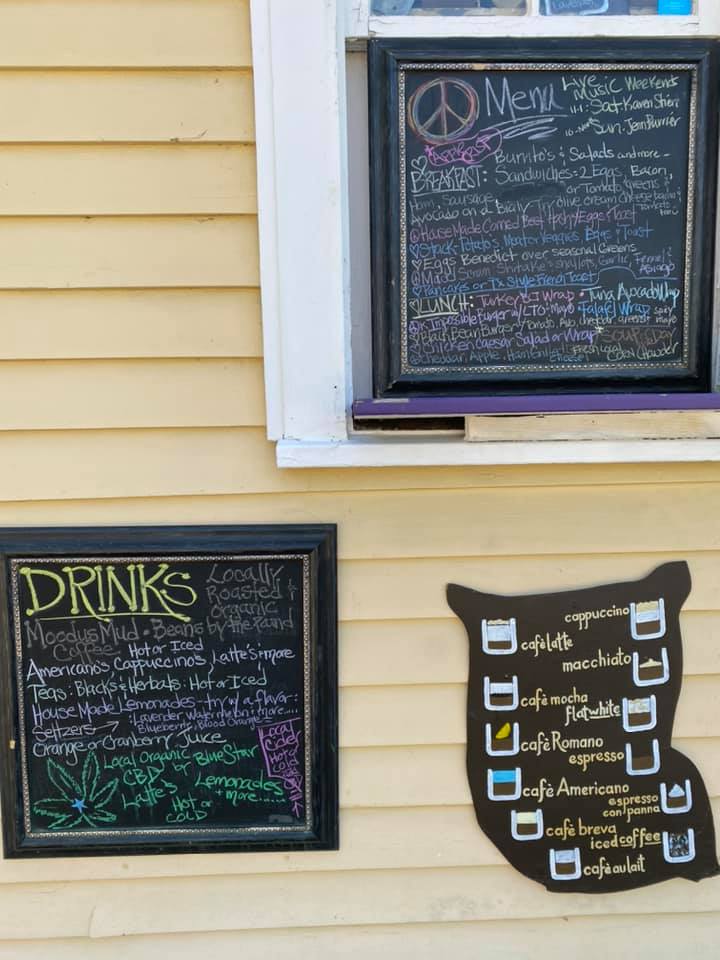 Menu
Live
Music Weekends
Sat. Karen
Sun. Jenn
Burrito's & Salads and more
BREAKFAST: Sandwiches: 2 Eggs, Bacon,
Ham, Sausage or Tomato, greens &
Avocado on a Bialy olive cream cheese
House Made Corned Beef Hash/Eggs Toast
Stack-Potato's Meat or Veggies Eggs & Toast
Eggs Benedict over seasonal Greens
Shiitake shallots, Garlic, Fennel &
Asiago
Pancakes or Tx Style French Toast
LUNCH: Turkey Wrap Tuna Avocado Wrap
Impossible Burger w/LTO-Mayo Falafel Wrap spicy
mayo
Black Bean Burger Tomato, Avo, cheddar, greens
Chicken Caesar Salad or Wrap
Cheddar, Apple, Ham Chowder
DRINKS
Locally
Roasted &
Organic
Moodus Mud • Beans by the Pound
Coffee Hot or Iced
Americanos Cappuccinos, Latte's & more
Teas: Blacks & Herbals: Hot or Iced
House Made Lemonades - try w/ a flavor:
Seltzers Lavender Watermelon & more....
Blueberry Blood Orange
Orange or Cranberry Juice
Local
Cider
Hot or
Cold
Local Organic or Blue Star
CBD
Latte's Lemonades
Hot or + more.....
COLD
cappuccino
cafè latte
macchiato
cafè mocha
flat white
cafè Romano
espresso
cafè Americano
espresso
con panna
cafè breva
iced coffee
cafè au lait